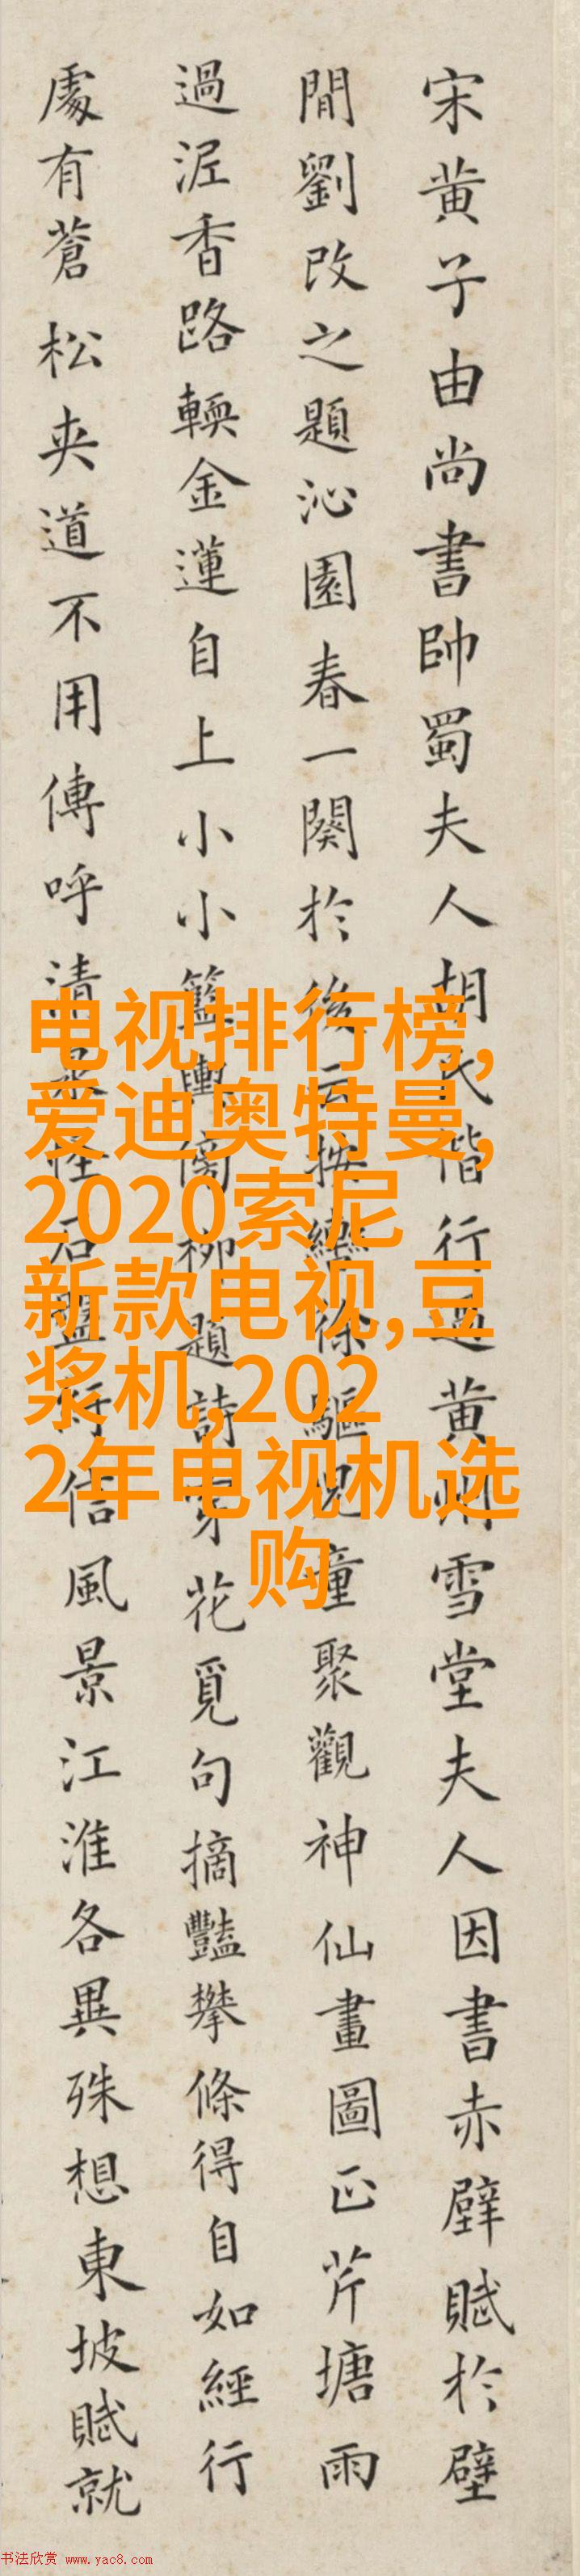 宋黄子由尚書帥蜀夫人胡氏偕行過黄州雪堂夫人因書赤壁賦於壁
間劉改之題沁園春一闋於後云按轡徐驅兒童聚觀神仙畫圖正芹塘雨
過泥香路輭金蓮自上小小籃輿傍柳題詩穿花覓句摘豔攀條得自如經行
處有蒼松夾道不用傳呼清泉怪石盤紆信風景江淮各異殊想東坡賦就
电视排行榜,
爱迪奥特曼,
2020索尼
新款电视,豆
浆机,202
2年电视机选
购
书法欣赏 www.yac8.com